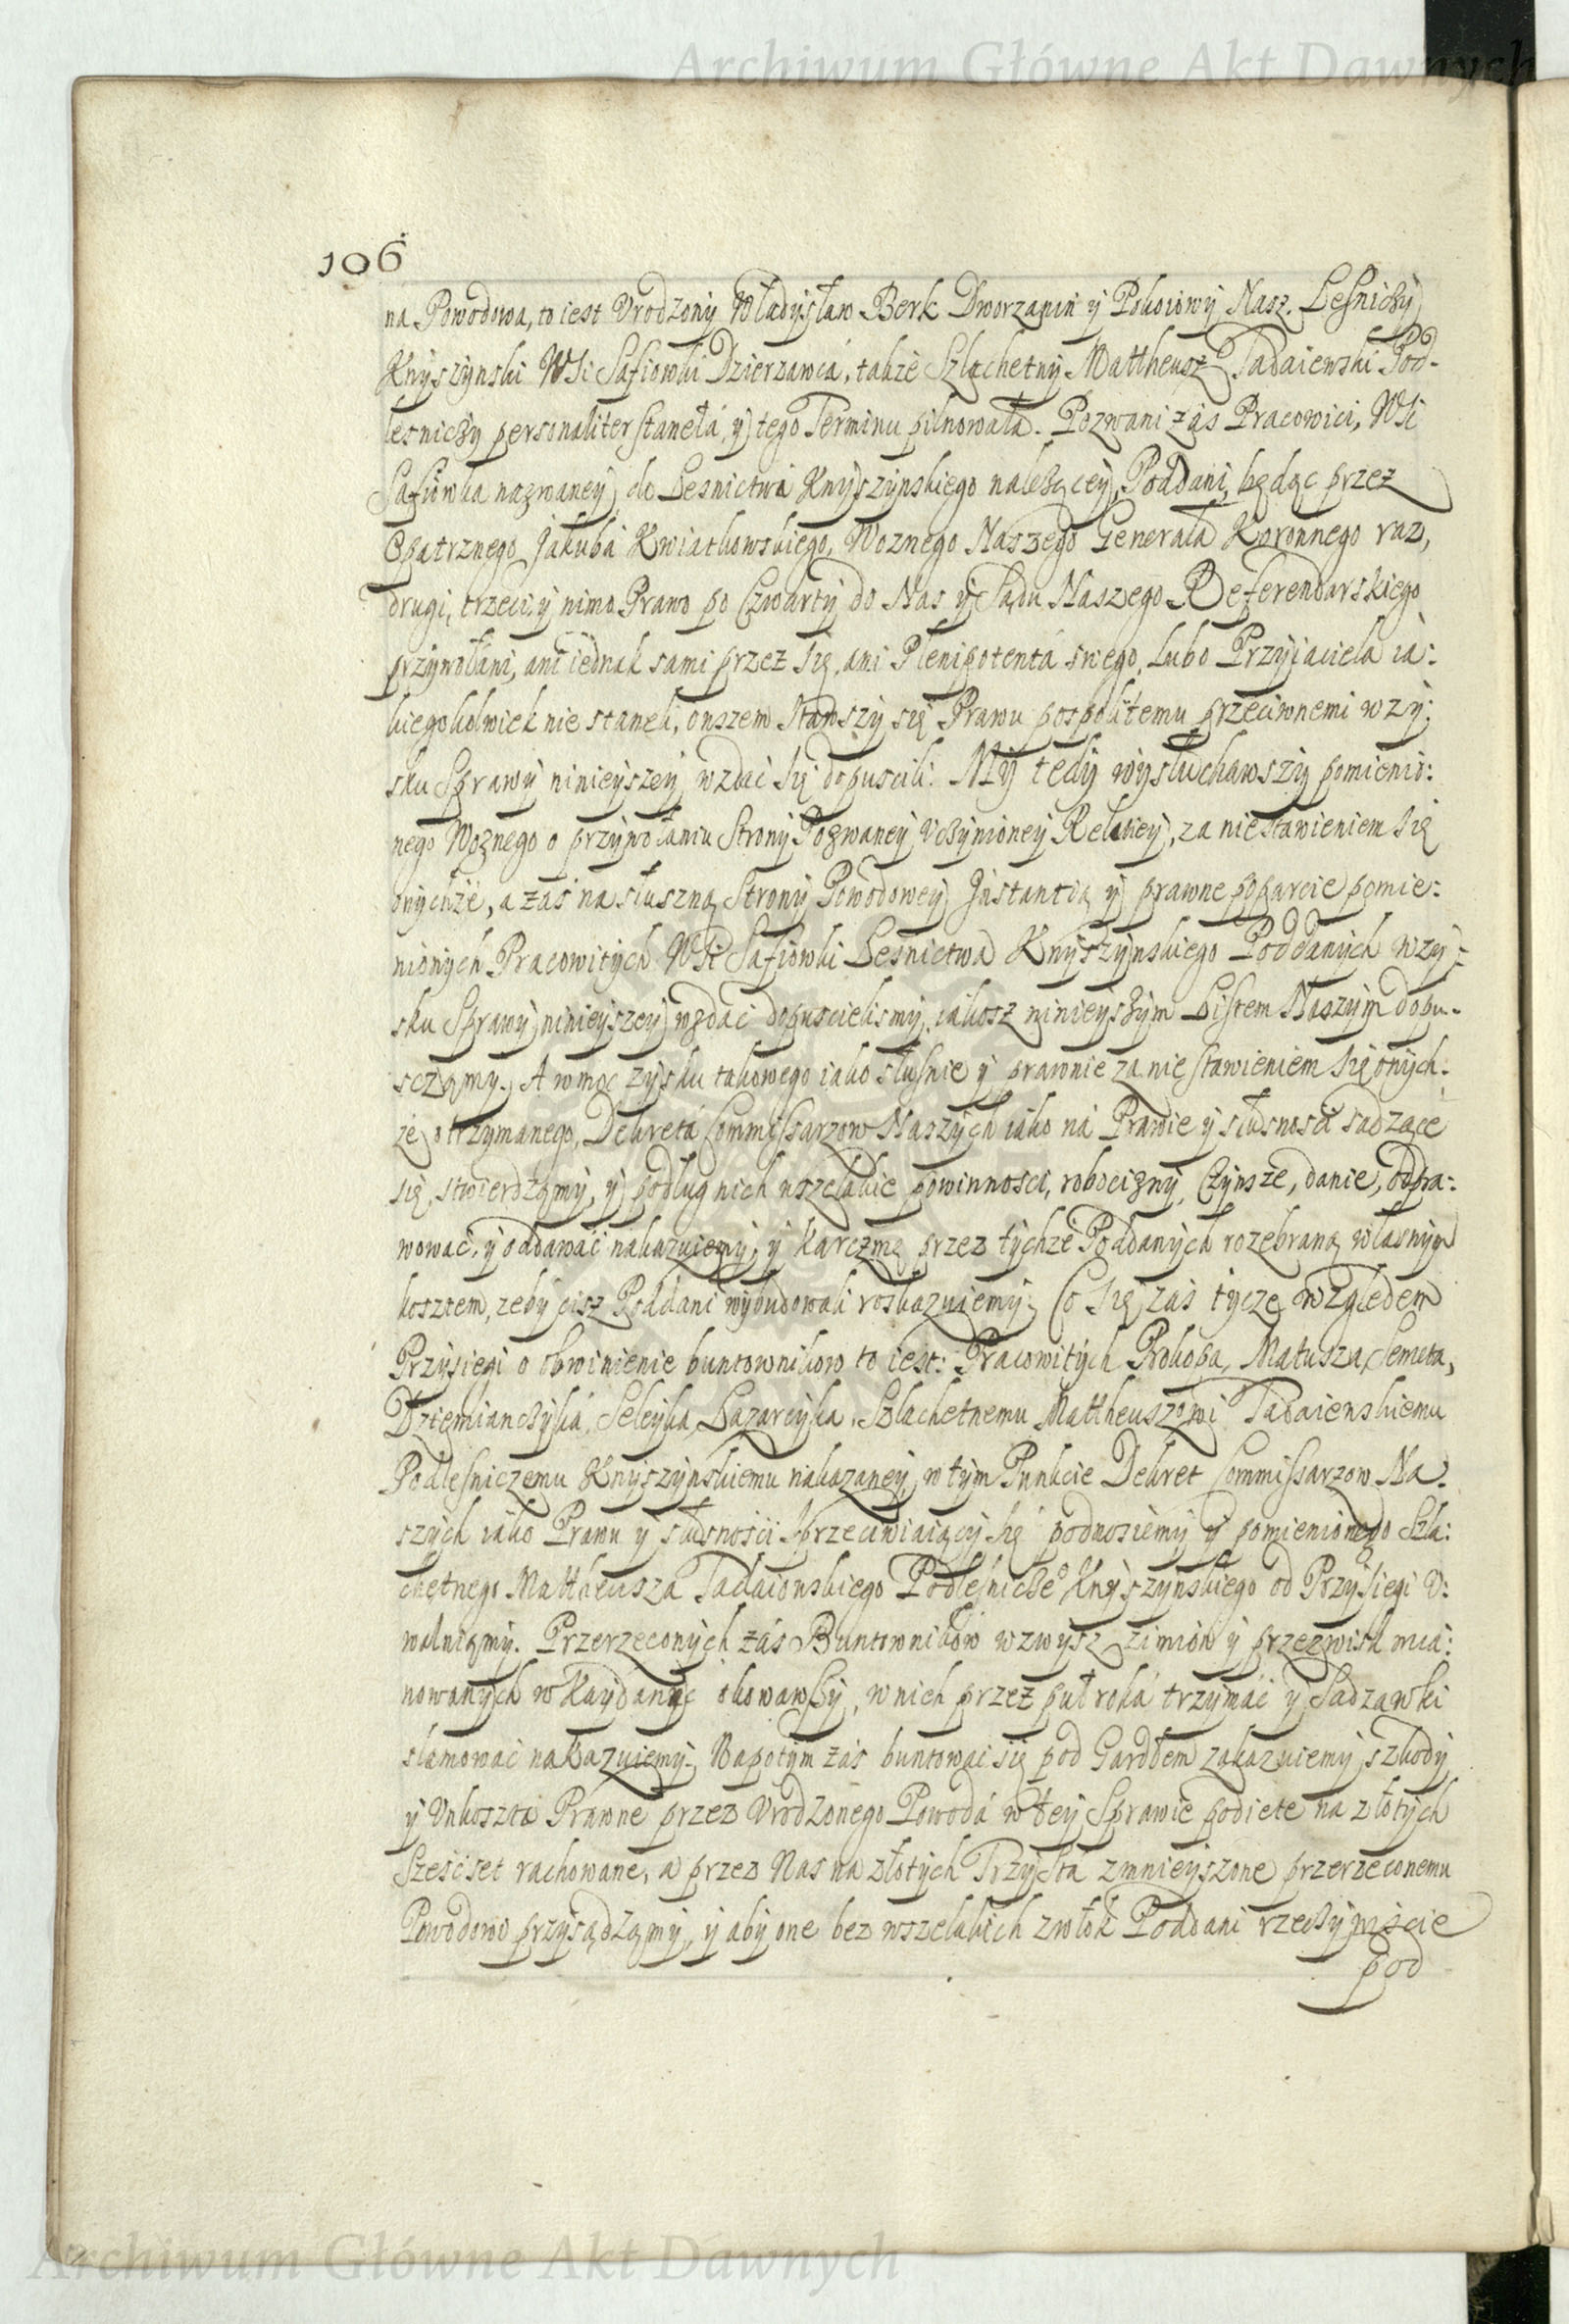 Archiwum Główne Akt Dawnych
106
na Powodowa, to iest Vrodzony Władysław Berk Dworzanin y Pokoiowy Nasz. Leśniczy
Knyszynski WSi Safiowki Dzierzawcá, także Szlachetny Mattheusz Tadaiewski Pod-
lesniczy personaliter stanełá, y tego Terminu pilnowała. Pozwani zás Pracowici, WSi
Safiowka nazwaney, do Lesnictwá Knyszynskiego należącey, Poddani, będąc przez
Opatrznego Jakubá Kwiatkowskiego, Woznego Naszego Generała Koronnego raz,
drugi, trzeci, y nimo Prawo po Czwarty do Nas y Sądu Naszego Referendarskiego
przywołani, ani iednak sami przez się, ani Plenipotentá swego, lubo Przyiaciela ia:
kiegokolwiek nie staneli, owszem stawszy się Prawu pospolitemu przeciwnemi w zy:
sku Sprawy ninieyszey wzdać się dopuscili. My tedy wysłuchawszy pomienio:
nego Woznego o przywołaniu Strony Pozwaney vczynioney Relatiey, za niestawieniem się
onychże, a zás na słuszną Strony Powodowey Instantią y prawne poparcie pomie:
nionych Pracowitych WSi Safiowki Lesnictwa Knyszynskiego Poddanych w zy:
sku Sprawy ninieyszey wzdáć dopuscielismy, iakosz ninieyszym Listem Naszym dopu-
sczamy. A w moc zysku takowego iako słusnie y prawnie za nie stawieniem się onych:
że otrzymanego, Dekretá Commissarzow Naszych iako ná Prawie y słusnosci sadzące
się, stwierdzamy, y podlug nich wszelakie powinnosci, robocizny, Czynsze, danie, odpra:
wować, y oddawać nakazuiemy, y karczmę przez tychże Poddanych rozebraną własnym
kosztem, zeby cisz Poddani wybudowali roskazuiemy; Co się zás tycze względem
Przysięgi o obwinienie buntownikow to iest: Pracowitych Prokopa, Matusza, Semuta,
Dziemianczyká, Seleyka, Lazarcyka, Szlachetnemu Mattheuszowi Tadaiewskiemu
Podleśniczemu Knyszynskiemu nakazaney, w tym Punkcie Dekret Commissarzow Na:
szych iako Prawu y słusnosci sprzeciwiaiący się podnosiemy y pomienionego Szla:
chetnego Mattheuszá Tadaiewskiego Podleśnicze° Knyszynskiego od Przysięgi v:
walniamy. Przerzeconych zás Buntownikow wzwysz z imion y przezwisk mia:
nowanych w Kaydany okowawszy, w nich przez puł roká trzymać y Sadzawki
slamować nakazuiemy. Napotym zás buntować się pod Gardłem zakazuiemy, szkody
y Vnkoszta Prawne przez Vrodzonego Powodá w tey Sprawie podiete na złotych
Sześćset rachowane, a przez Nas na złotych Trzysta zmnieyszone przerzeconemu
Powodowi przysądzamy, y aby one bez wszelakich zwłok Poddani rzeczywiscie
pod
Archiwum Główne Akt Dawnych